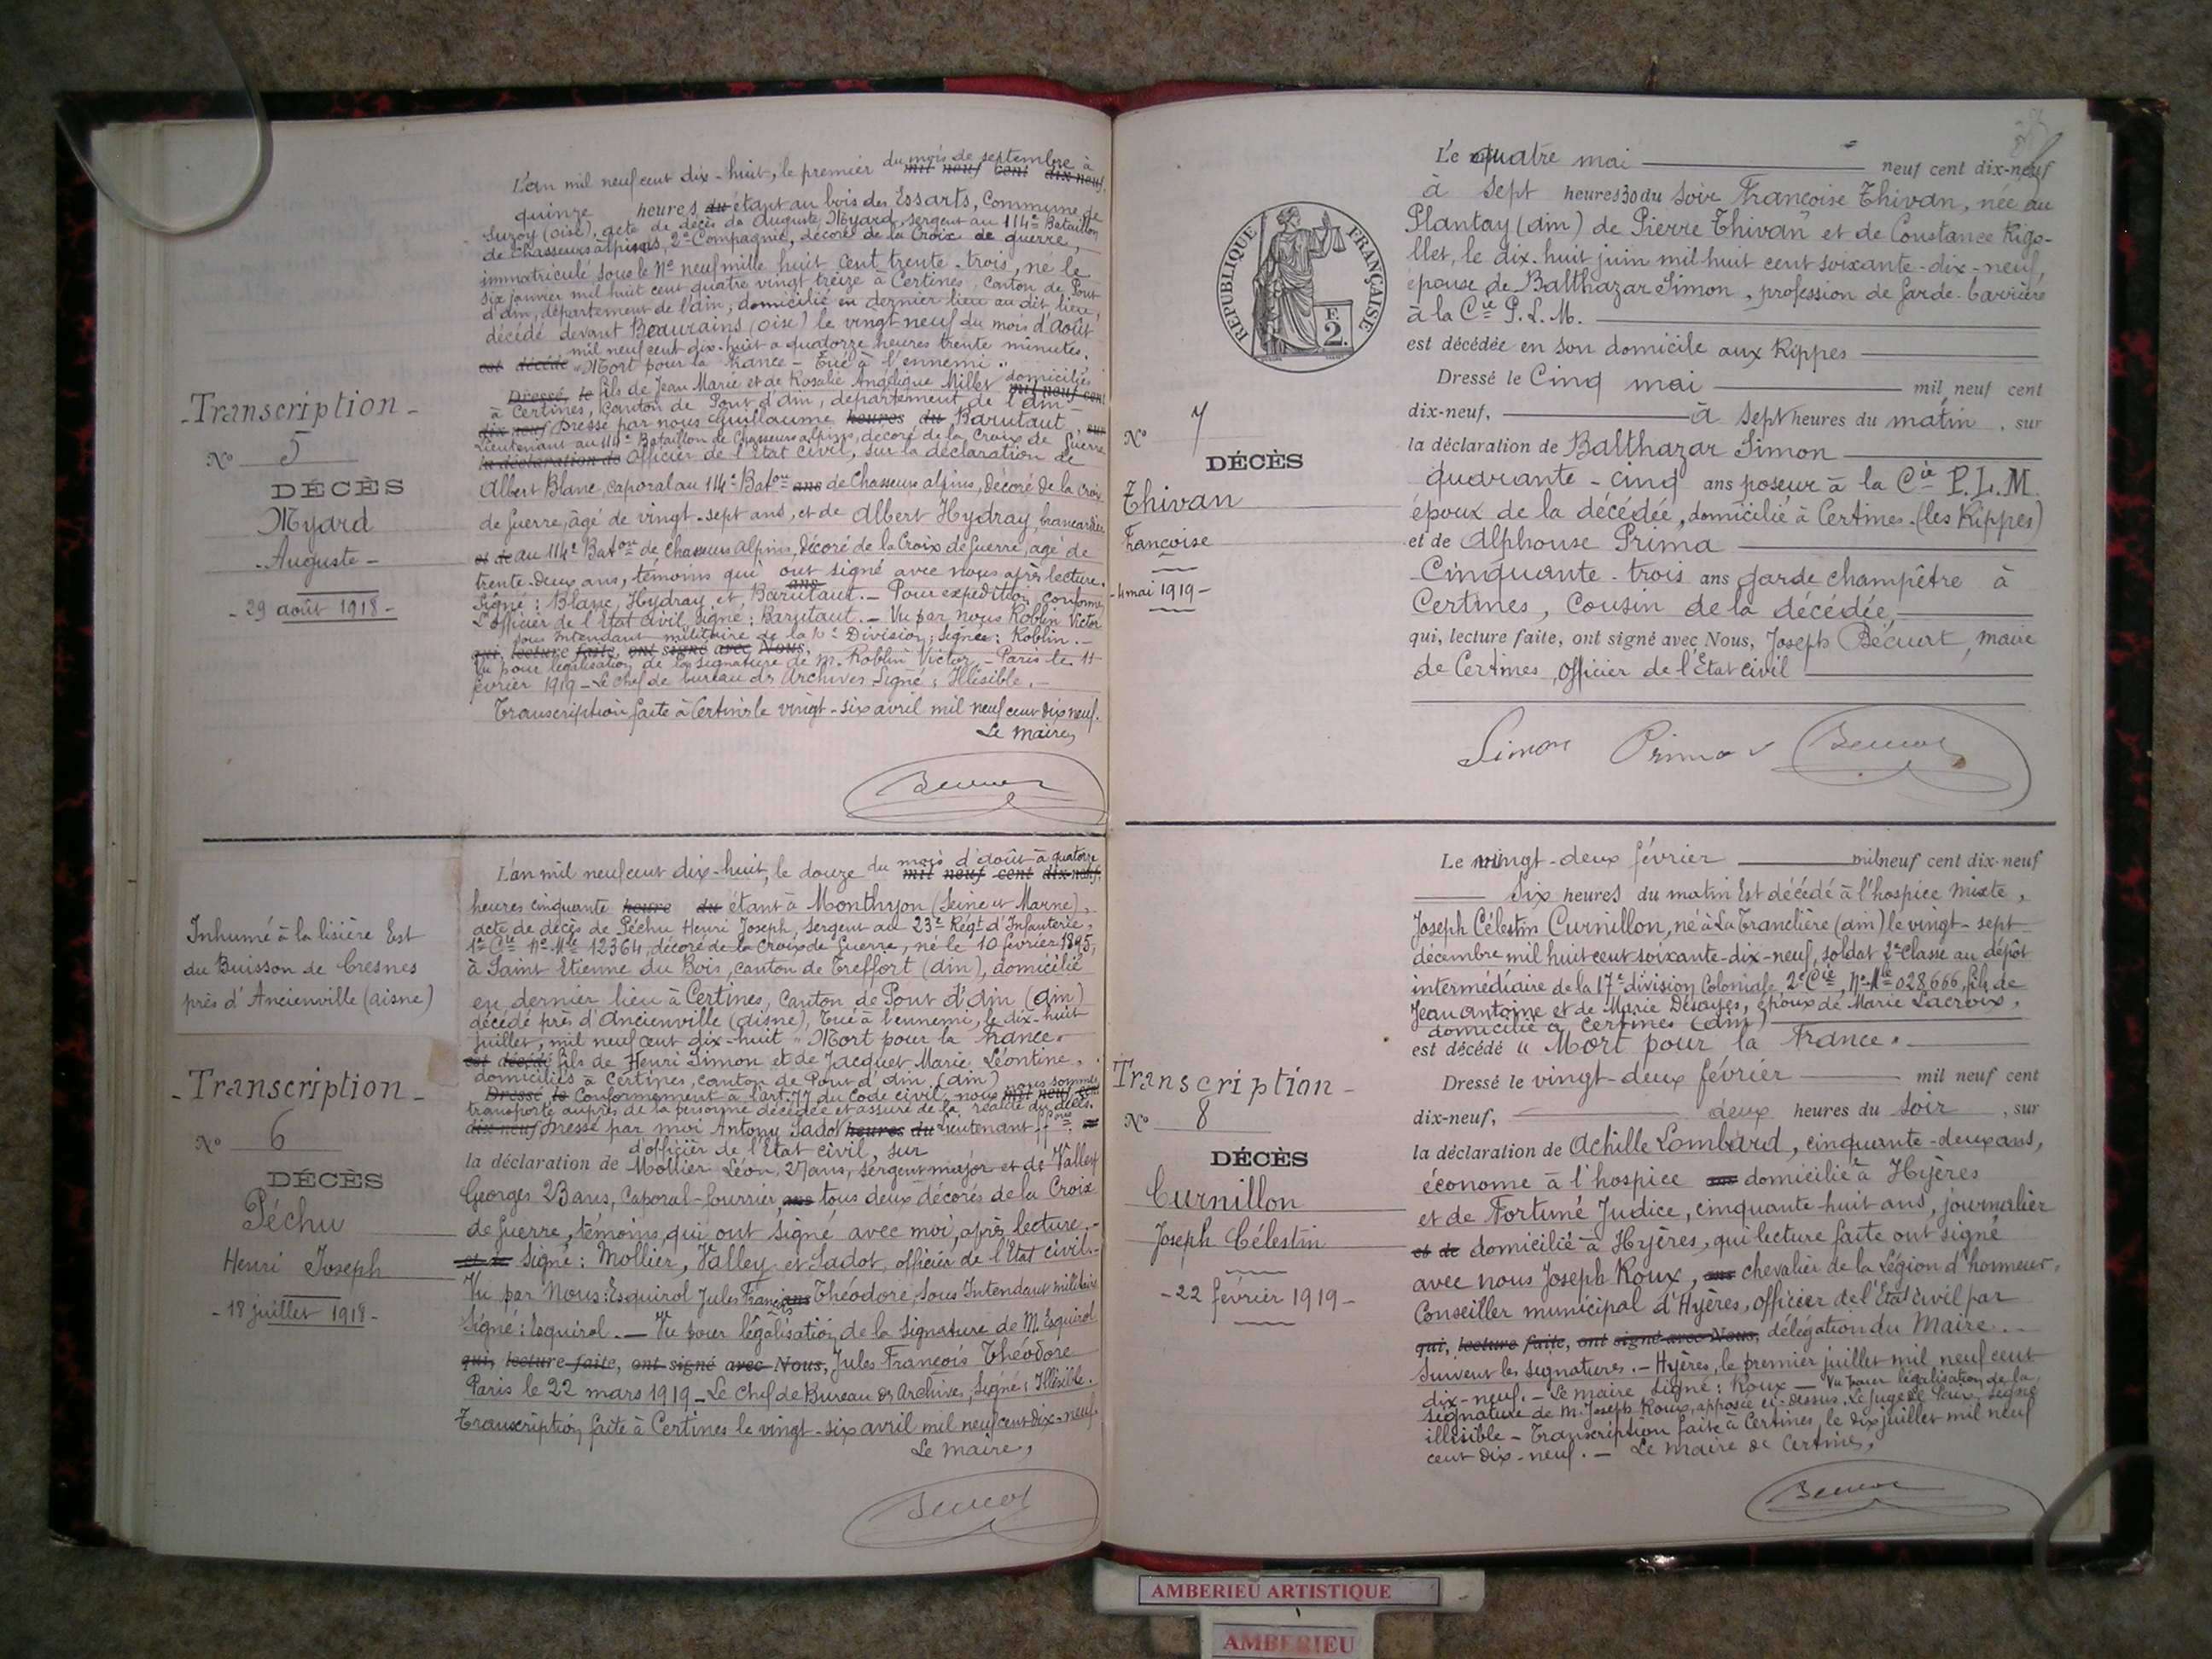 Transcription
N° 5
DÉCÈS
Myard
Auguste
29 août 1918
L'an mil neuf cent dix-huit, le premier du mois de septembre à
mil neuf cent dix-neuf,
quinze heures du étant au bois des Essarts, Commune de
Suzoy (oise), acte de décès de Auguste Myard, sergent au 114e Bataillon
de Chasseurs alpins, 2e Compagnie, décoré de la Croix de guerre,
immatriculé sous le N° neuf mille huit cent trente-trois, né le
six janvier mil huit cent quatre vingt treize à Certines, canton de Pont
d'ain, département de l'ain, domicilié en dernier lieu au dit lieu,
décédé devant Beaurains (oise) le vingt neuf du mois d'août
mil neuf cent dix-huit à quatorze heures trente minutes.
est décédé "Mort pour la France - Tué à l'ennemi".
Dressé, le fils de Jean Marie et de Rosalie Angélique Millet domiciliés
mil neuf cent
à Certines, Canton de Pont d'ain, département de l'ain
dix-neuf Dressé par nous Guillaume heures du Barutaut, sur
Lieutenant au 114e Bataillon de Chasseurs alpins, décoré de la Croix de Guerre
la déclaration de Officier de l'Etat Civil, sur la déclaration de
Albert Blanc, caporal au 114e Baton ans de Chasseurs alpins, décoré de la Croix
de Guerre, âgé de vingt-sept ans, et de Albert Hydray brancardier
et de au 114e Baton de Chasseurs Alpins, décoré de la Croix de Guerre, âgé de
trente-deux ans, témoins qui ont signé avec nous après lecture.
ans
Signé : Blanc, Hydray et Barutaut. - Pour expédition conforme
L'officier de l'Etat Civil, signé : Barutaut. - Vu par Nous Roblin Victor
sous Intendant militaire de la Division ; signée : Roblin. -
qui, lecture faite, ont signé avec Nous,
Vu pour légalisation de la signature de M. Roblin Victor - Paris le 11
février 1919 - Le chef de bureau des Archives Signé : Illisible. -
Transcription faite à Certines le vingt-six avril mil neuf cent dix neuf.
Le Maire,
Inhumé à la lisière Est
du Buisson de Cresnes
près d'Ancienville (aisne)
Transcription
N° 6
DÉCÈS
Péchu
Henri Joseph
18 juillet 1918
L'an mil neuf cent dix-huit, le douze du mois d'août à quatorze
mil neuf cent dix-neuf,
heures cinquante heure du étant à Monthyon (Seine et Marne),
acte de décès de Péchu Henri Joseph, Sergent au 23e Régt d'Infanterie,
1e Cie N° Mle 12364, décoré de la Croix de Guerre, né le 10 février 1895,
à Saint Etienne du Bois, canton de Treffort (ain), domicilié
en dernier lieu à Certines, Canton de Pont d'ain (ain)
décédé près d'Ancienville (aisne), tué à l'ennemi, le dix-huit
juillet, mil neuf cent dix-huit "Mort pour la France"
est décédé fils de Henri Simon et de Jacquet Marie Léontine,
domiciliés à Certines, canton de Pont d'ain (ain)
Dressé, le Conformément à l'art. 77 du Code civil, nous nous sommes
mil neuf cent
transporté auprès de la personne décédée et assuré de la réalité du décès.
dix-neuf Dressé par moi Antony Sadot heures du Lieutenant
d'officier de l'Etat civil, sur
la déclaration de Mollier Léon, 27 ans, sergent major et de Valley
Georges 23 ans, caporal-fourrier, ans tous deux décorés de la Croix
de Guerre, témoins qui ont signé avec moi, après lecture. -
et de Signé : Mollier, Valley et Sadot, officier de l'Etat civil. -
Vu par Nous : Esquirol Jules François ans Théodore, Sous Intendant militaire
Signé : Esquirol. - Vu pour légalisation de la signature de M. Esquirol
qui, lecture faite, ont signé avec Nous, Jules François Théodore
Paris le 22 mars 1919 - Le Chef de Bureau des Archives, signé : Illisible.
Transcription faite à Certines le vingt-six avril mil neuf cent dix-neuf.
Le Maire,
N° 7
DÉCÈS
Thivan
Françoise
4 mai 1919
REPUBLIQUE FRANÇAISE
F. 2.
Le quatre mai neuf cent dix-neuf
à sept heures 30 du soir Françoise Thivan, née au
Plantay (ain) de Pierre Thivan et de Constance Rigo-
llet, le dix-huit juin mil huit cent soixante-dix-neuf,
épouse de Balthazar Simon, profession de Garde-barrière
à la Cie P. L. M.
est décédée en son domicile aux Rippes
Dressé le Cinq mai mil neuf cent
dix-neuf, à sept heures du matin, sur
la déclaration de Balthazar Simon
quarante-cinq ans poseur à la Cie P.L.M.
époux de la décédée, domicilié à Certines (les Rippes)
et de Alphonse Prima
Cinquante-trois ans garde champêtre à
Certines, Cousin de la décédée,
qui, lecture faite, ont signé avec Nous, Joseph Bécurt, maire
de Certines, Officier de l'Etat civil
Simon Prima
Transcription
N° 8
DÉCÈS
Curnillon
Joseph Célestin
22 février 1919
Le vingt-deux février mil neuf cent dix-neuf
six heures du matin Est décédé à l'hospice mixte,
Joseph Célestin Curnillon, né à La Tranclière (ain) le vingt-sept
décembre mil huit cent soixante-dix-neuf, soldat 2e Classe au dépôt
intermédiaire de la 17e division Coloniale, 2e Cie, N° Mle 028,666, fils de
Jean Antoine et de Marie Desayes, époux de Marie Lacroix,
domicilié à Certines (ain)
est décédé "Mort pour la France".
Dressé le vingt-deux février mil neuf cent
dix-neuf, deux heures du soir, sur
la déclaration de Achille Lombard, cinquante-deux ans,
économe à l'hospice ans domicilié à Hyères
et de Fortuné Judice, cinquante-huit ans, journalier
et de domicilié à Hyères, qui lecture faite ont signé
avec nous Joseph Roux, ans chevalier de la Légion d'honneur,
Conseiller municipal d'Hyères, officier de l'Etat civil par
qui, lecture faite, ont signé avec Nous, délégation du Maire. -
Suivent les signatures. - Hyères, le premier juillet mil neuf cent
dix-neuf. - Le Maire, signé : Roux - Vu pour légalisation de la
signature de M. Joseph Roux, apposée ci-dessus, Le Juge de Paix, signé
illisible - Transcription faite à Certines, le dix juillet mil neuf
cent dix-neuf. - Le Maire de Certines,
AMBERIEU ARTISTIQUE
AMBERIEU